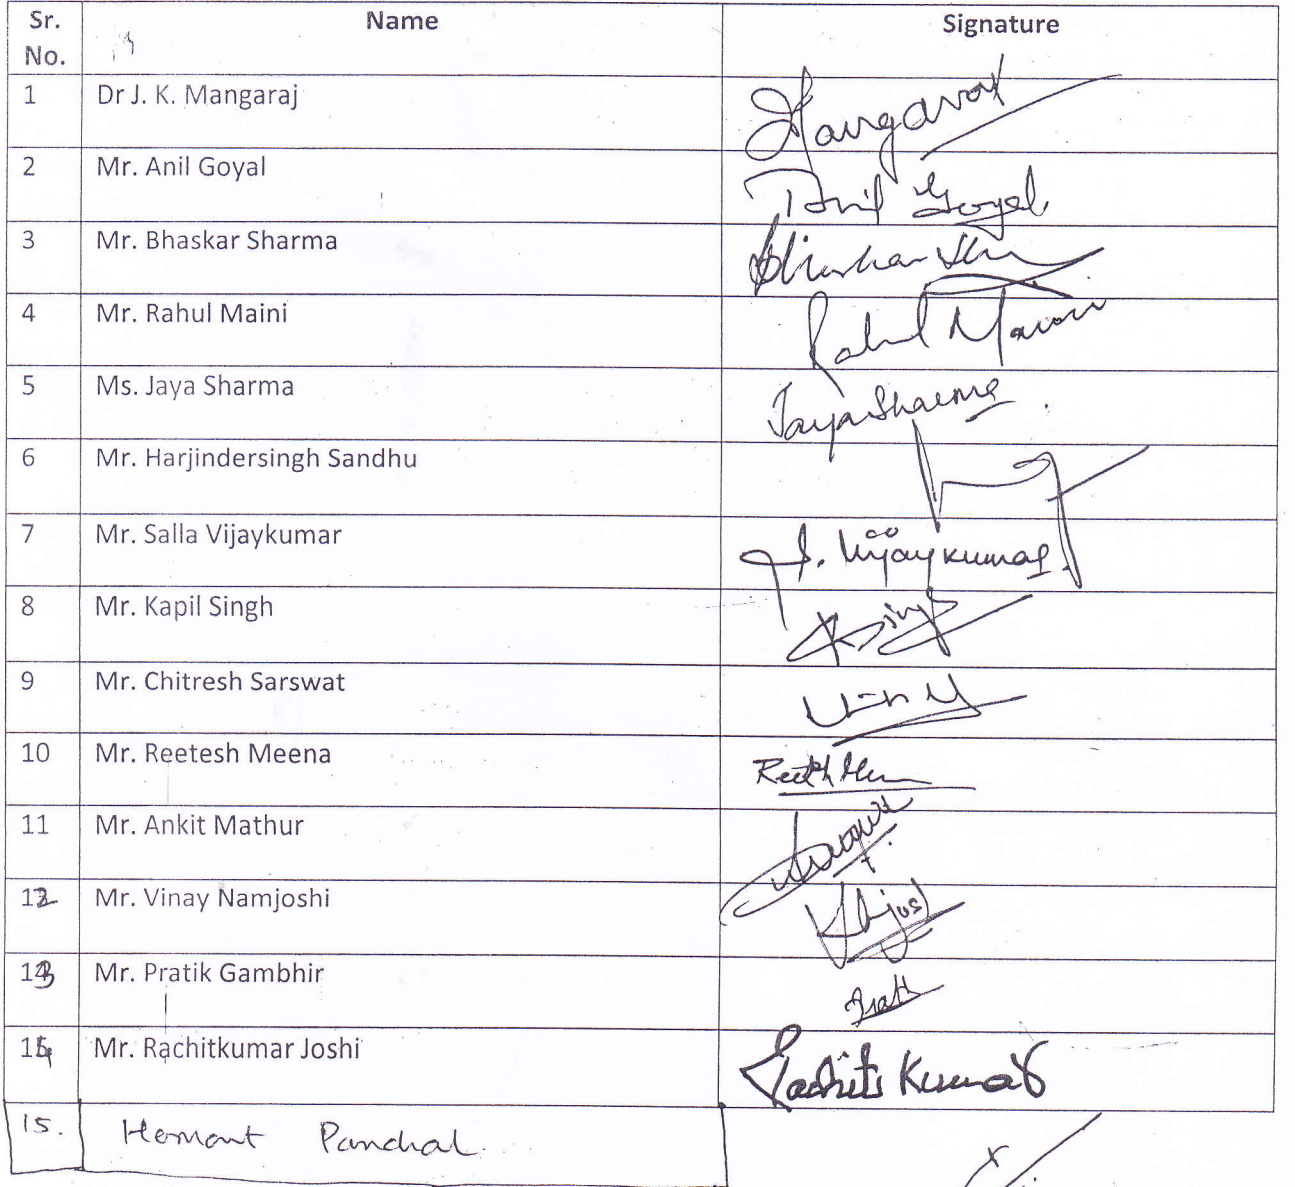 Sr. No. Name Signature
1 Dr J. K. Mangaraj Mangaraj
2 Mr. Anil Goyal Anil Goyal
3 Mr. Bhaskar Sharma
4 Mr. Rahul Maini Rahul Maini
5 Ms. Jaya Sharma Jaya Sharma
6 Mr. Harjindersingh Sandhu
7 Mr. Salla Vijaykumar S. Vijaykumar
8 Mr. Kapil Singh KSingh
9 Mr. Chitresh Sarswat
10 Mr. Reetesh Meena
11 Mr. Ankit Mathur
12 Mr. Vinay Namjoshi
13 Mr. Pratik Gambhir
14 Mr. Rachitkumar Joshi Rachit Kumar
15. Hemant Panchal